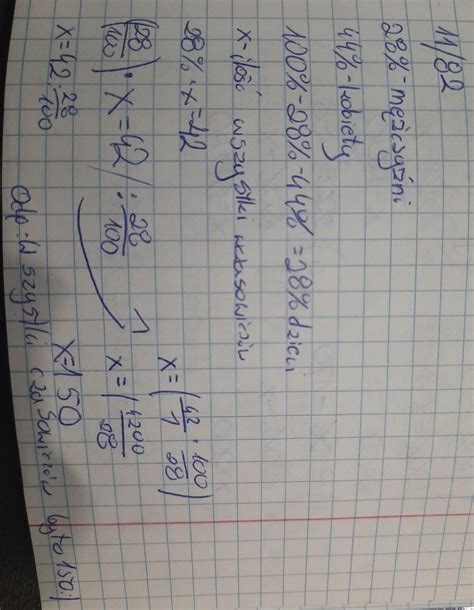 11/82
28%-mężczyźni
44%-kobiety
100%-28%-44%=28% dzieci
x-ilość wszystki wczasowiczów
28%·x=42
(28/100)·x=42/:28/100
x=42:28/100
x=(42/1·100/28)
x=(4200/28)
x=150
Odp: Wszystki wczasowiczów było 150.